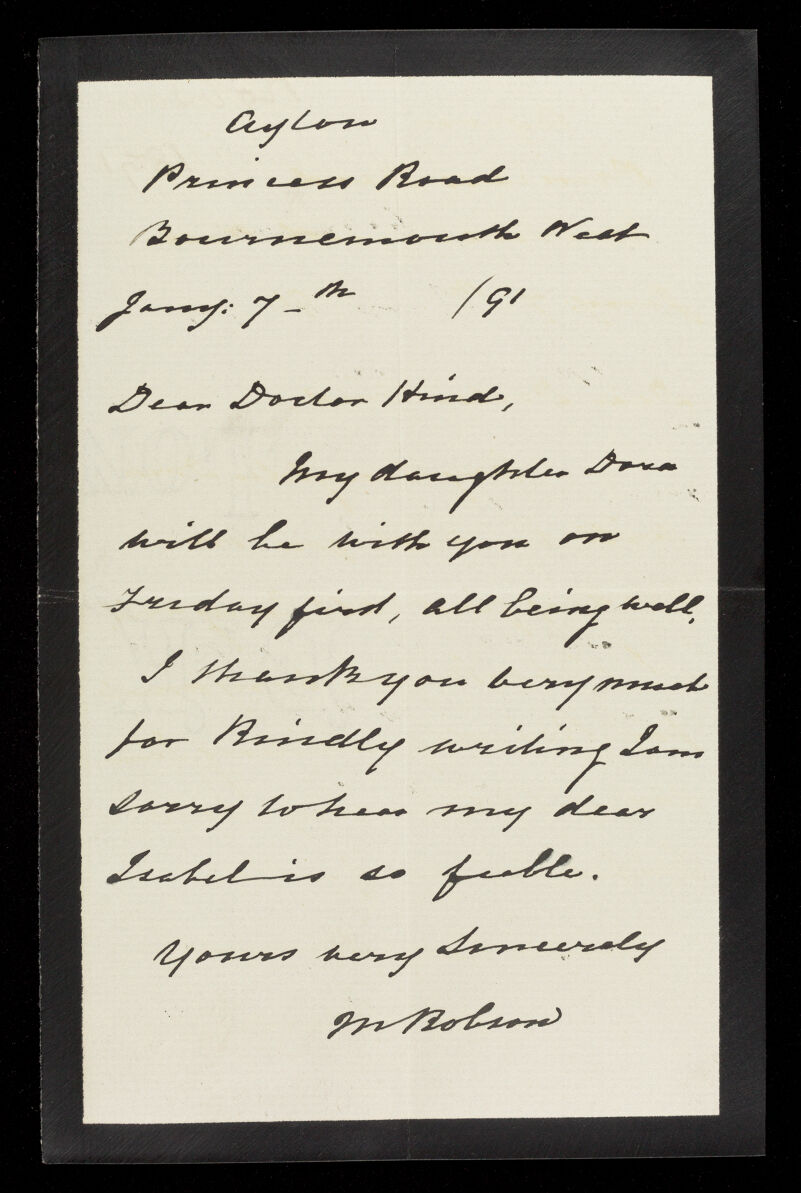 Ayton
Princess Road
Bournemouth West
Jany: 7-th /91
Dear Doctor Hind,
My daughter Dora
will be with you on
Friday first, all being well.
I thank you very much
for kindly writing I am
sorry to hear my dear
Isabel is so feeble.
Yours very sincerely
M Robson